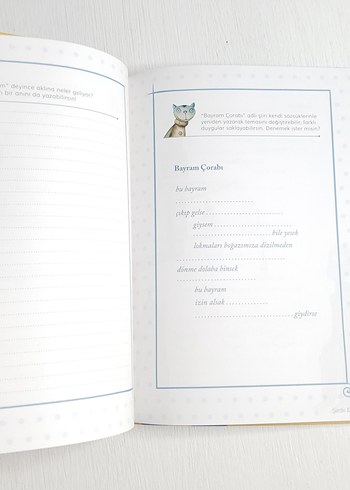 deyince aklına neler geliyor?
bir anını da yazabilirsin!
"Bayram Çorabı" adlı şiiri kendi sözcüklerinle
yeniden yazarak temasını değiştirebilir, farklı
duygular saklayabilirsin. Denemek ister misin?
Bayram Çorabı
bu bayram
çıkıp gelse
giysem
bile yesek
lokmaları boğazımıza dizilmeden
dönme dolaba binsek
bu bayram
izin alsak
giydirse